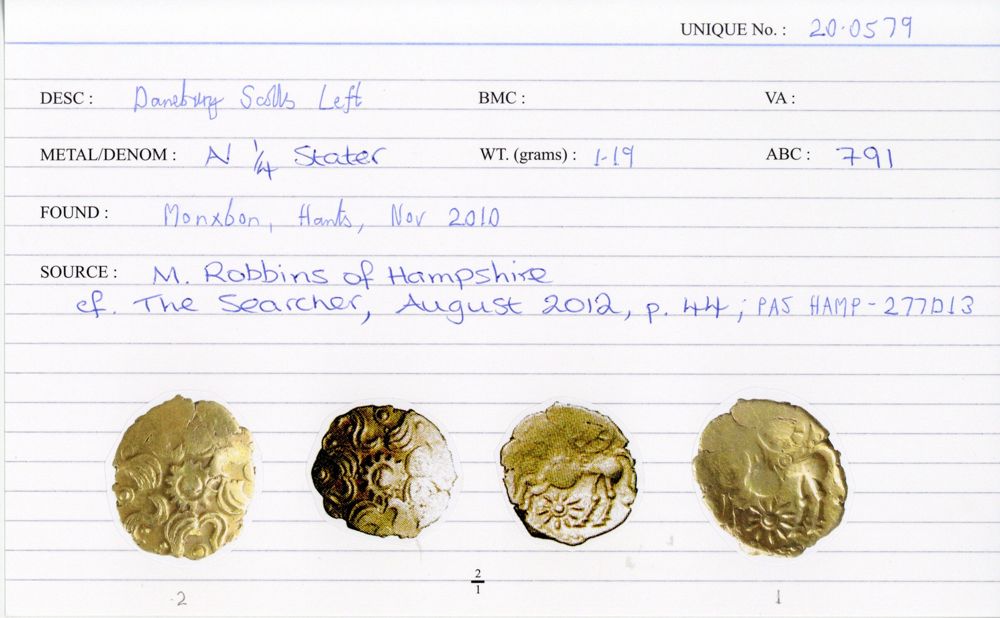 UNIQUE No. : 20.0579
DESC : Danebury Scrolls Left BMC : VA :
METAL/DENOM : AV 1/4 Stater WT. (grams) : 1.19 ABC : 791
FOUND : Monxton, Hants, Nov 2010
SOURCE : M. Robbins of Hampshire
cf. The Searcher, August 2012, p. 44; PAS HAMP-277D13
2/1
2 1